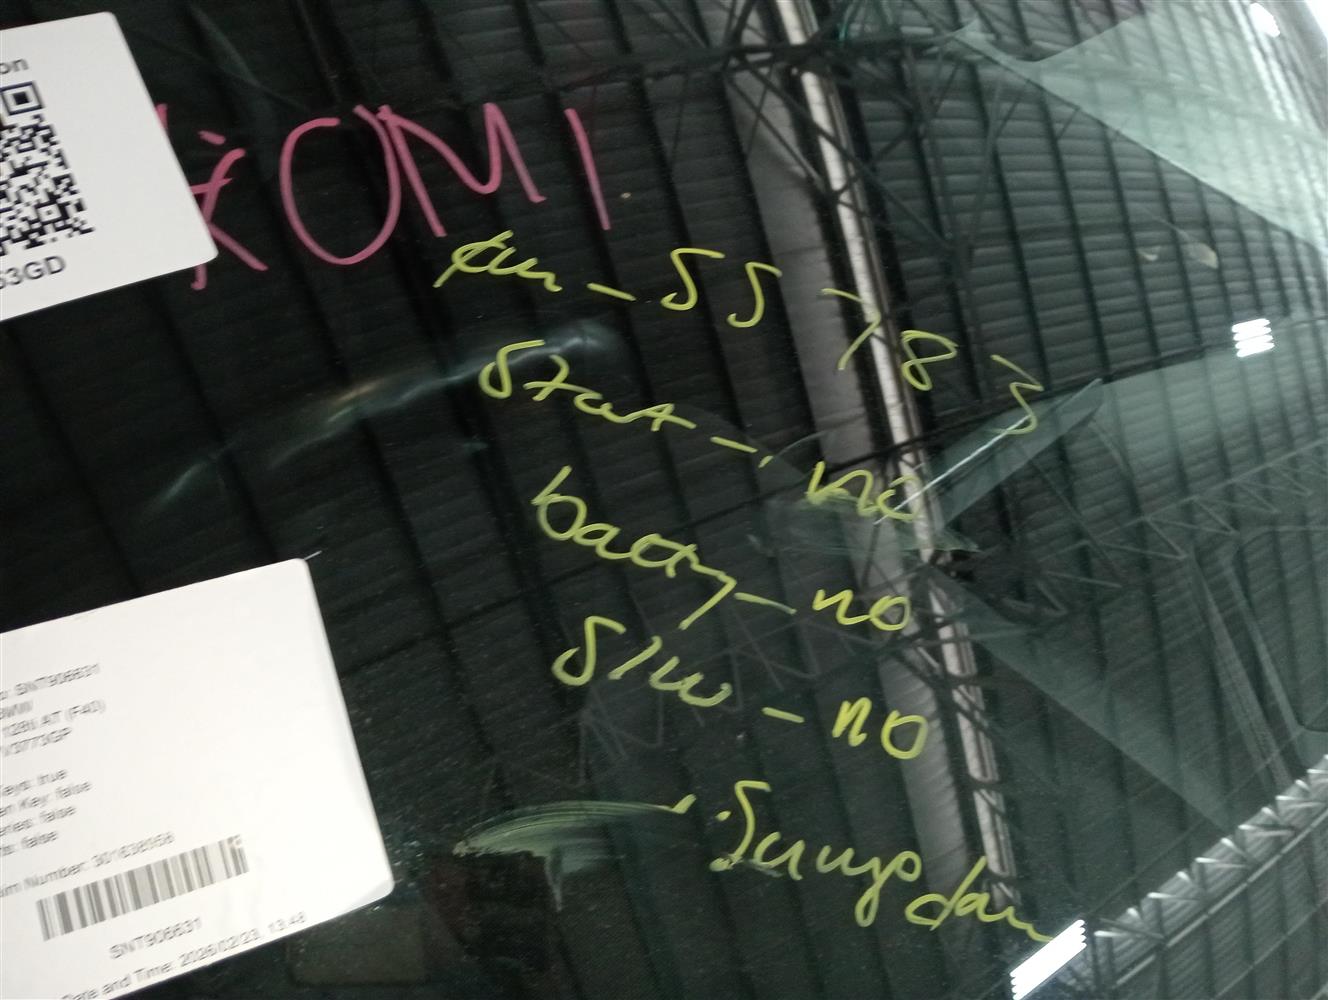 on
53GD
KOMI
km - 55783
Start - no
battery - no
S/W - no
Sump dam
SNT906631
BMW
128ti AT (F40)
V3773GP
Keys: true
en Key: false
eries: false
false
im Number: 901638958
SNT906631
Date and Time: 2026/02/23, 13:48